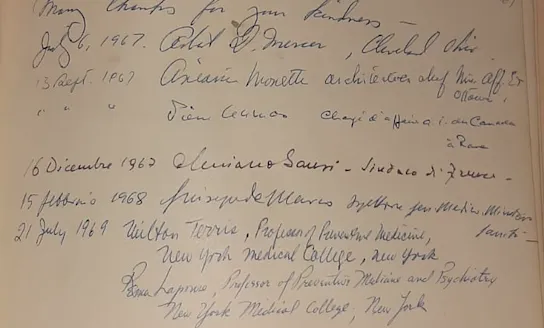 Many thanks for your kindness —
July 6, 1967. D. Mercer, Cleveland Ohio
13 Sept. 1967 Monette architecte en chef Min. Aff. Ext. Ottawa,
" " " Chargé d'affaires a. i. du Canada
à Rome
16 Dicembre 1967 Luciano - Sindaco di
15 febbraio 1968 Giuseppe de Marco Ispettore gen. Medico. Ministero Sanità -
21 July 1969 Milton Terris, Professor of Preventive Medicine,
New York Medical College, New York
Rema Lapouse, Professor of Preventive Medicine and Psychiatry
New York Medical College, New York